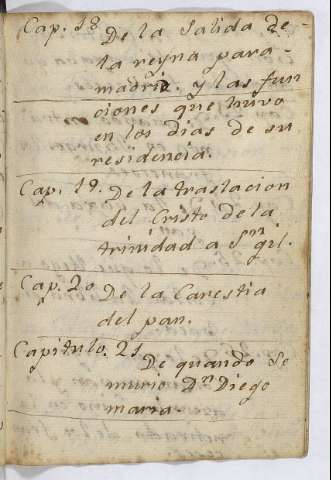 Cap. 18 De la Salida de
la reyna para
madrid. y las fun
ciones que huvo
en los dias de su
residencia.
Cap. 19. De la traslacion
del Cristo de la
trinidad a Sn gil.
Cap. 20 De la Carestia
del pan.
Capitulo. 21
De quando se
murio Dn Diego
maria